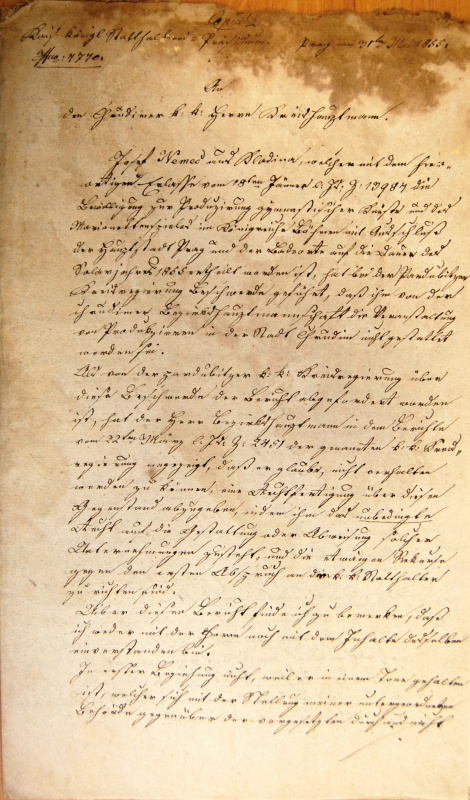 Copia
Kais. königl. Statthalterei-Präsidium. Prag am 31ten Mai 1855.
Nro: 4770.
An
den Chrudimer k. k. Herrn Kreishauptmann.
Josef Nemec aus Kladina, welcher mit dem hier-
ortigen Erlasse vom 18ten Jänner l. J. Z: 13984 die
Bewilligung zur Produzirung gymnastischer Künste und des
Marionettenspiels im Königreiche Böhmen mit Ausschluß
der Hauptstadt Prag und der Badeorte auf die Dauer des
Solarjahres 1855 ertheilt worden ist, hat bei der Pardubitzer
Kreisregierung Beschwerde geführt, daß ihm von der
Chrudimer Bezirkshauptmannschaft die Veranstaltung
von Produkzionen in der Stadt Chrudim nicht gestattet
worden sei.
Als von der Pardubitzer k. k. Kreisregierung über
diese Beschwerde der Bericht abgefordert worden
ist, hat der Herr Bezirkshauptmann in dem Berichte
vom 22ten März l. J. Z: 2451 der genannten k. k. Kreis-
regierung angezeigt, daß er glaube, nicht verhalten
werden zu können, eine Rechtfertigung über diesen
Gegenstand abzugeben, indem ihm das unbedingte
Recht auf die Gestattung oder Abweisung solcher
Unternehmungen zusteht, und die etwaigen Rekurse
gegen den ersten Abspruch an die k. k. Statthalterei
zu richten sind.
Über diesen Bericht finde ich zu bemerken, daß
ich weder mit der Form noch mit dem Inhalte desselben
einverstanden bin.
In erster Beziehung nicht, weil er in einem Tone gehalten
ist, welcher sich mit der Stellung einer untergeordneten
Behörde gegenüber der vorgesetzten durchaus nicht